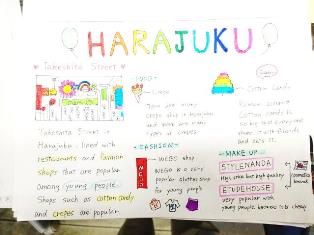 HARAJUKU
Takeshita Street
Takeshita Street is
Harajuku, lined with
restaurants and fashion
shops that are popular
among young people.
Shops such as cotton candy
and crepes are popular.
FOOD
Crepe
There are many
crepe
Cotton Candy
Rainbow
cotton candy is
so big that everyone
share it with friends
and eats it.
FASHION
WEGO shop
WEGO is a very
popular clothes shop
for young people
MAKE UP
STYLENANDA
High price but high quality
ETUDEHOUSE
very popular with
young people because it is cheap
cosmetics
brand